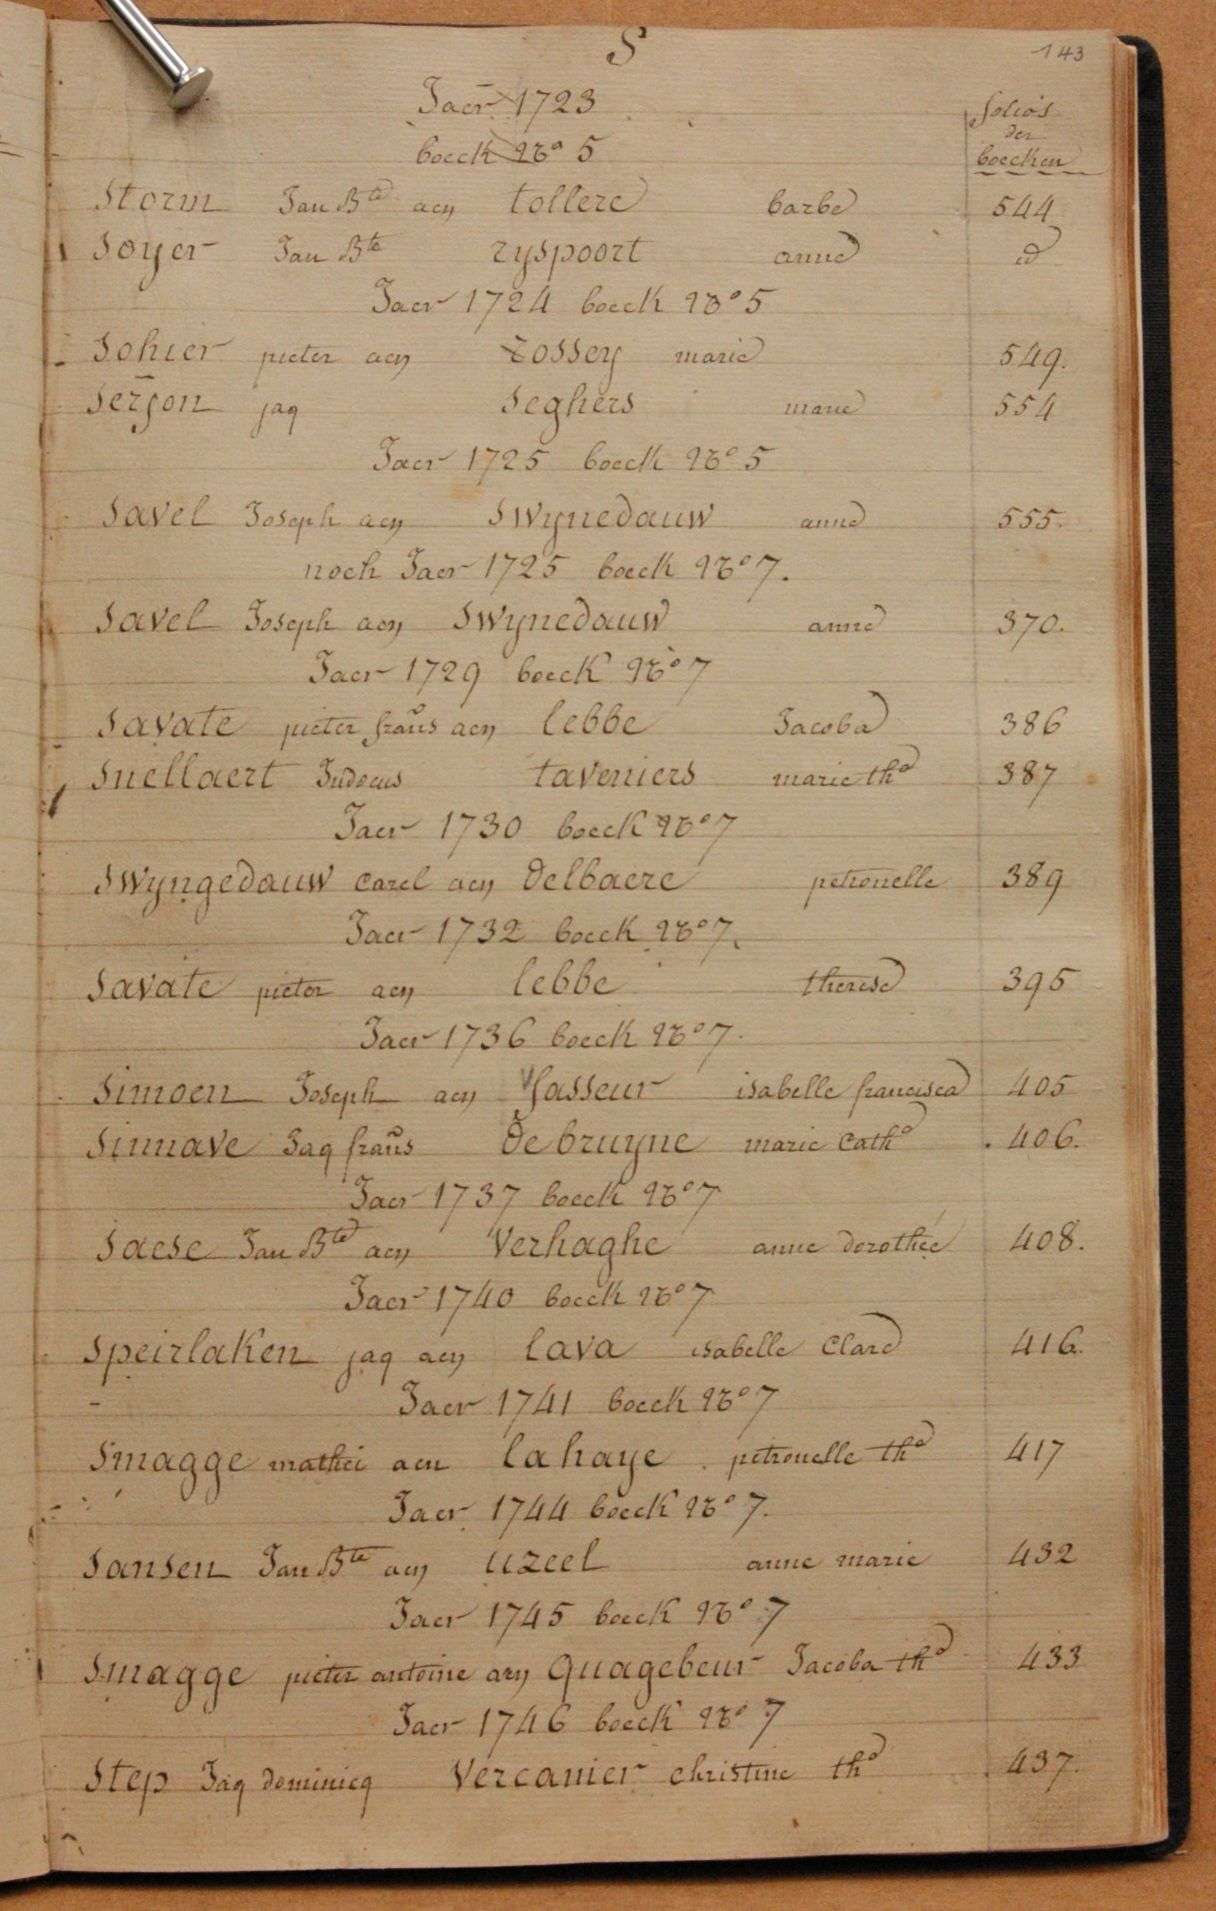 S
143
Jaer 1723
folios
der
boecken
boeck No 5
Storm Jan Bte aen tollere barbe 544
Soyer Jan Bte ryspoort anne id
Jaer 1724 boeck No 5
Sohier pieter aen tossey marie 549.
Serjon jaq Seghers marie 554
Jaer 1725 boeck No 5
Savel Joseph aen Swynedauw anne 555.
noch Jaer 1725 boeck No 7.
Savel Joseph aen Swynedauw anne 370.
Jaer 1729 boeck No 7
Savate pieter frans aen lebbe Jacoba 386
Snellaert Judocus taverniers marie tha 387
Jaer 1730 boeck No 7
Swyngedauw carel aen delbaere petronelle 389
Jaer 1732 boeck No 7.
Savate pieter aen lebbe therese 395
Jaer 1736 boeck No 7.
Simoen Joseph aen Vasseur isabelle francisca 405
Sinnave Jaq frans De bruyne marie catha 406.
Jaer 1737 boeck No 7
Saese Jan Bte aen Verhaghe anne dorothée 408.
Jaer 1740 boeck No 7
Speirlaken jaq aen lava isabelle Clare 416.
Jaer 1741 boeck No 7
Smagge mathei aen la haye petronelle tha 417
Jaer 1744 boeck No 7.
Sansen Jan Bte aen uzeel anne marie 432
Jaer 1745 boeck No 7
Smagge pieter antoine aen Quagebeur Jacoba tha 433
Jaer 1746 boeck No 7
Step Jaq dominicq Vercanier christine tha 437.